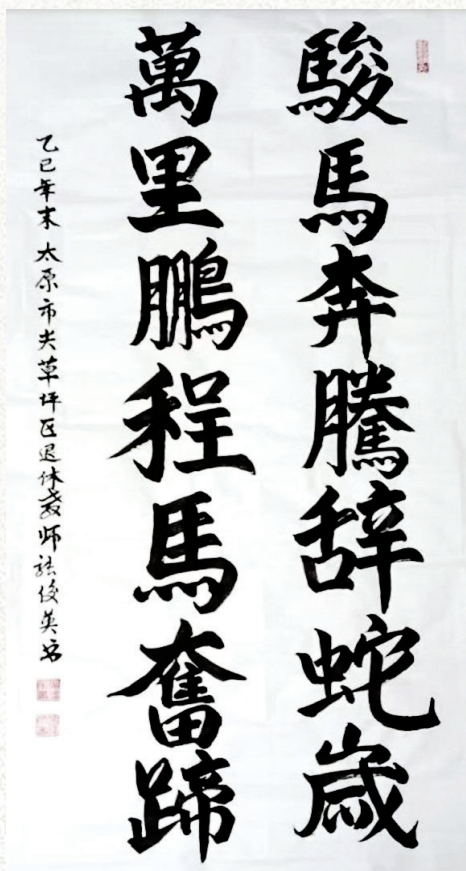 駿馬奔騰辞蛇歲
萬里鵬程馬奮蹄
乙巳年末 太原市尖草坪区退休教师張俊英书